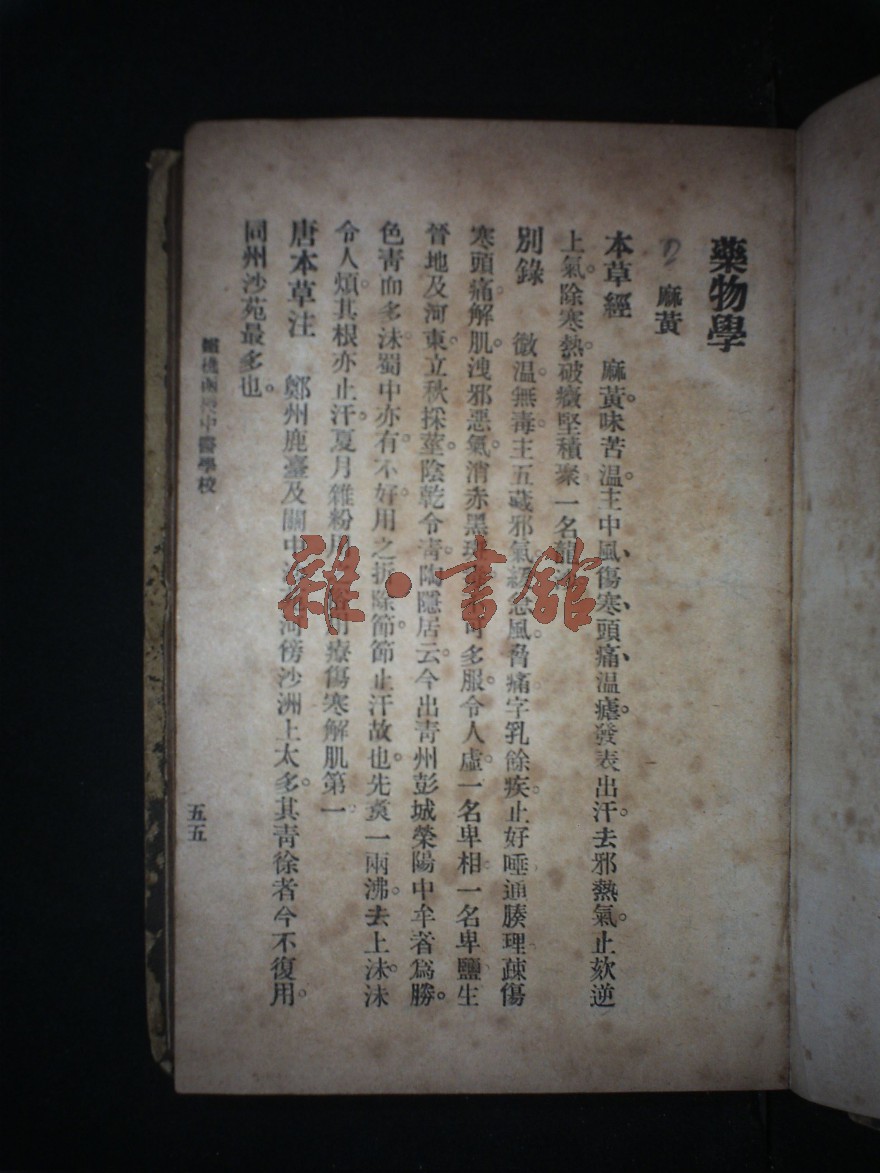 藥物學
麻黃
本草經 麻黃味苦溫。主中風、傷寒、頭痛、溫瘧。發表出汗。去邪熱氣。止欬逆
上氣。除寒熱。破癥堅積聚一名龍
別錄 微温。無毒。主五藏邪氣緩急。風脅痛。字乳餘疾。止好唾。通腠理。疎傷
寒頭痛。解肌。洩邪惡氣。消赤黑斑 可多服。令人虛。一名卑相。一名卑鹽。生
晉地及河東。立秋採莖。陰乾令靑。陶隱居云。今出靑州彭城榮陽中牟者爲勝。
色靑而多沫。蜀中亦有。不好。用之折除節。節止汗故也。先煑一兩沸。去上沫。沫
令人煩。其根亦止汗。夏月雜粉用 用療傷寒。解肌第一
唐本草注 鄭州鹿臺及關中沙 河傍沙洲上太多。其靑徐者今不復用。
同州沙苑最多也。
中醫學校
五五
雜·書館